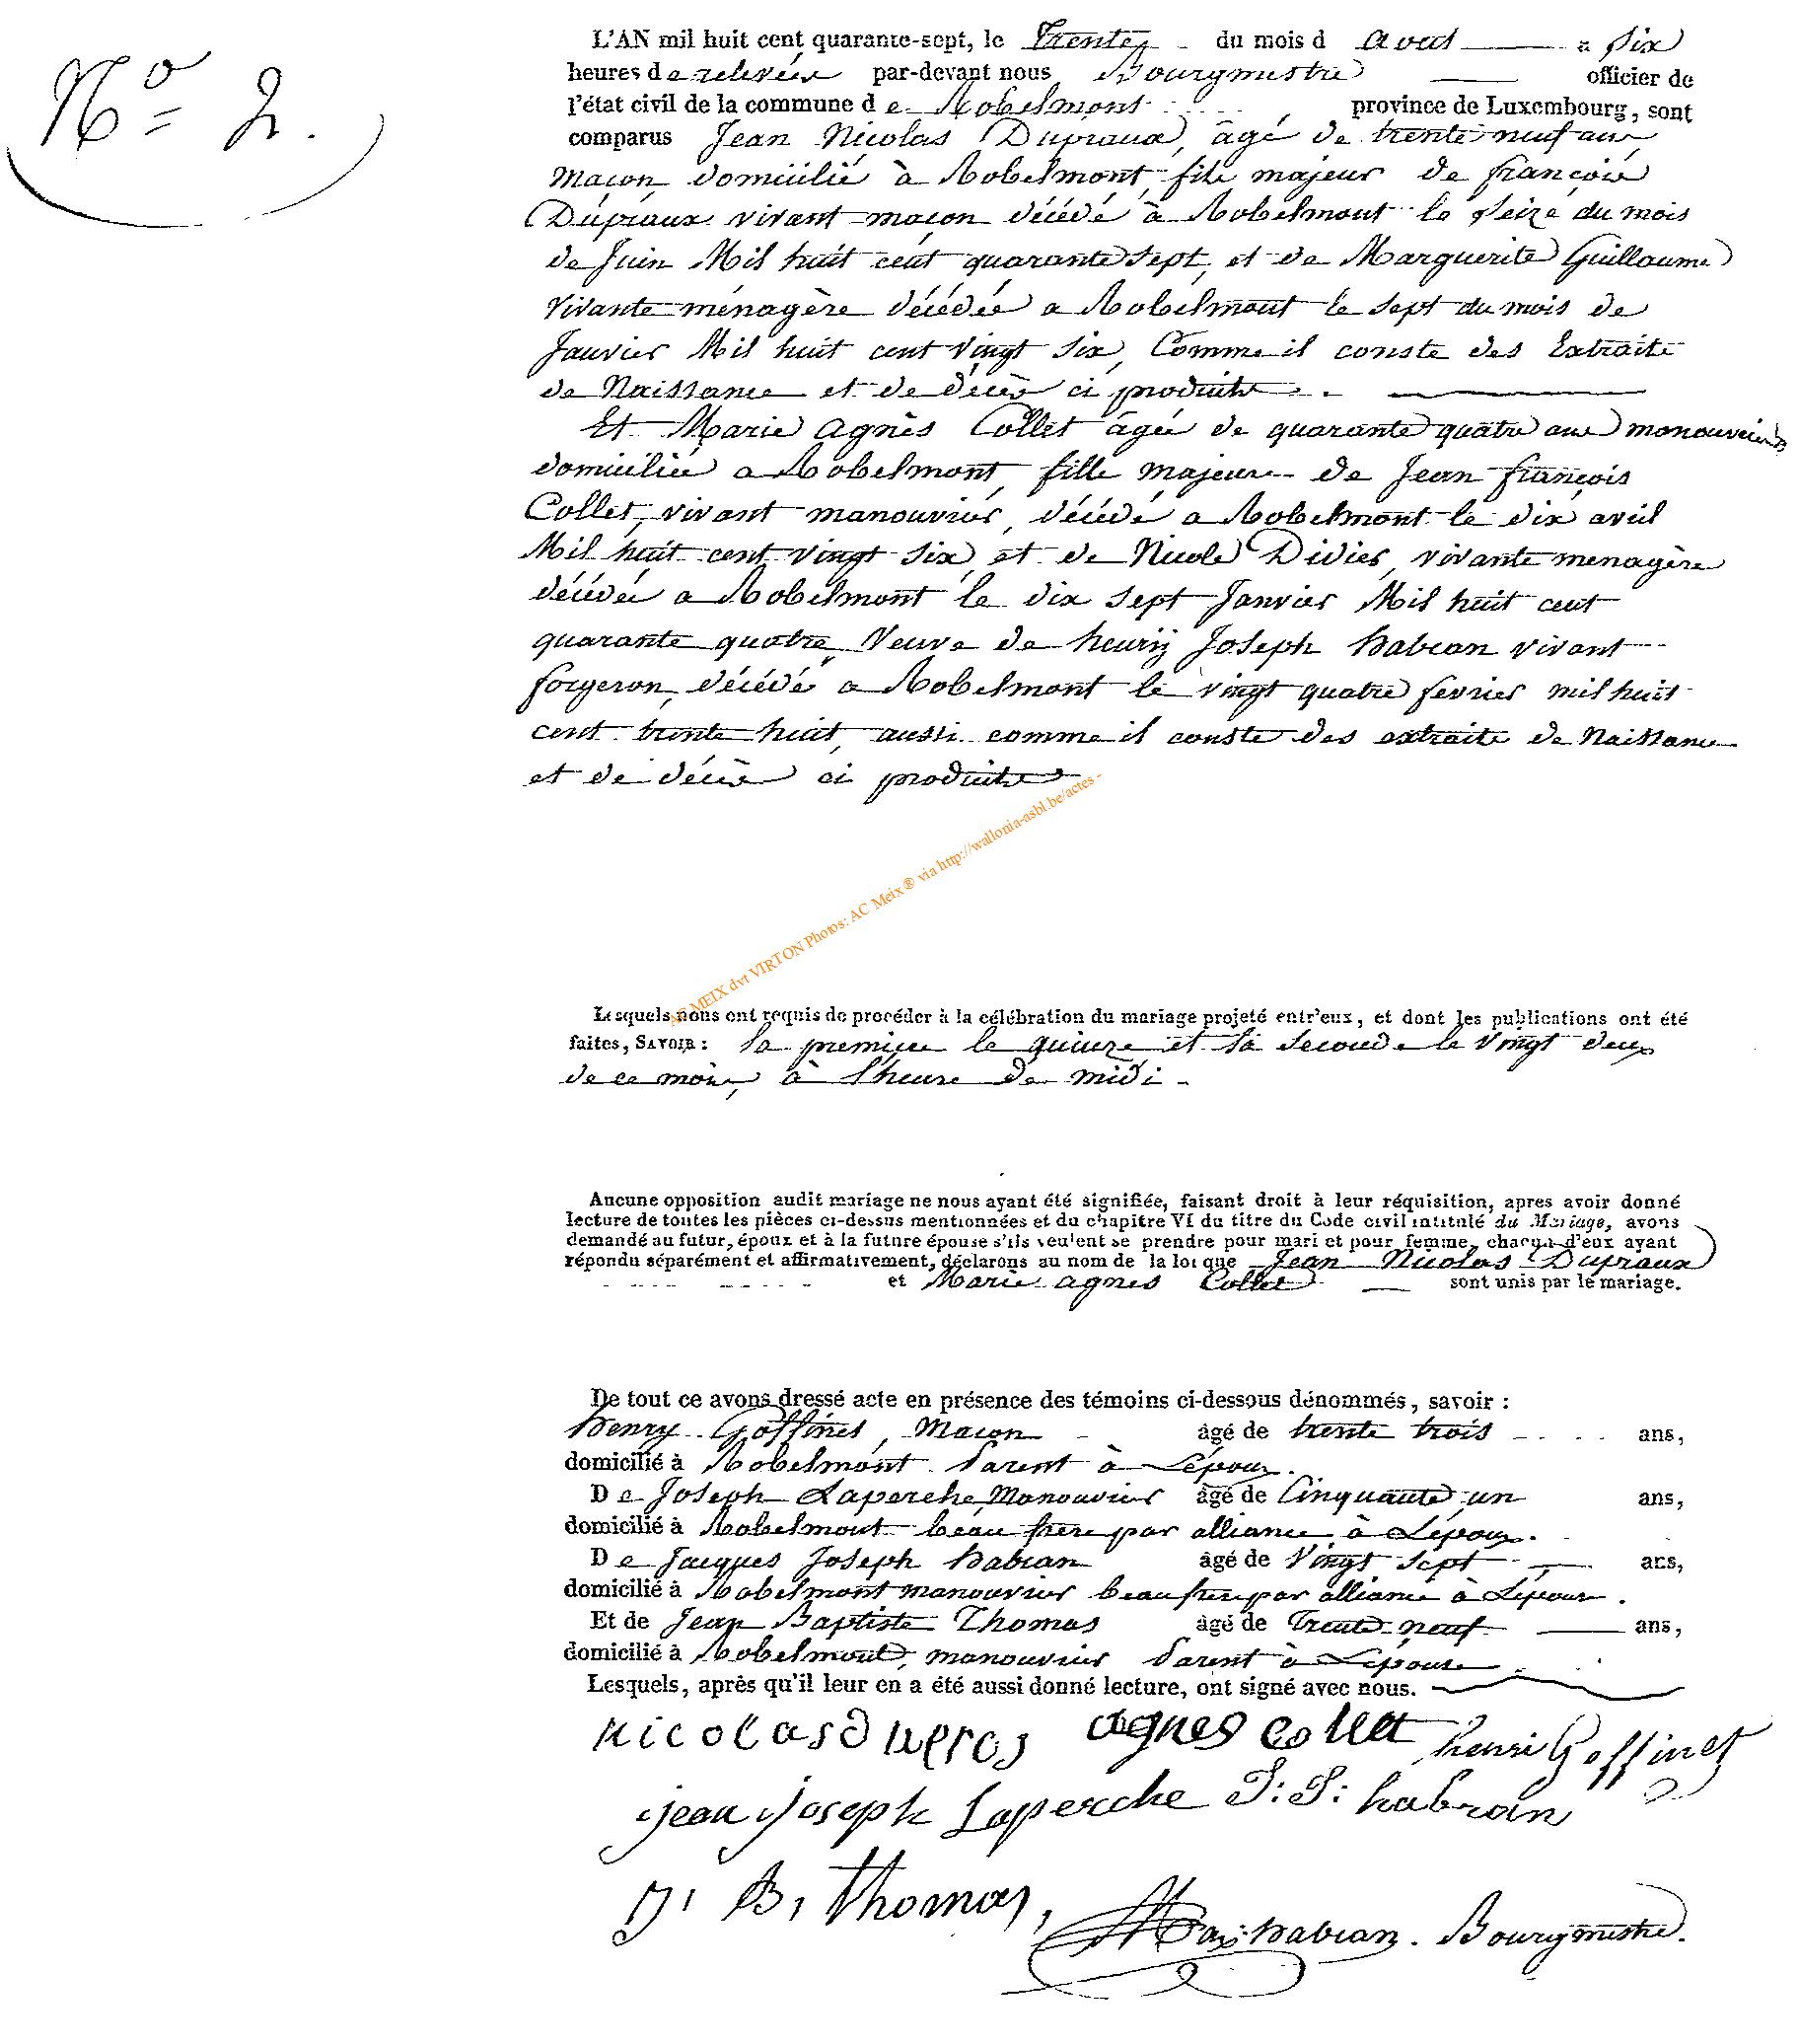 N° 2.
L'AN mil huit cent quarante-sept, le Trente du mois d aout a six
heures de relevée par-devant nous Bourgmestre officier de
l'état civil de la commune de Robelmont province de Luxembourg, sont
comparus Jean Nicolas Dupraux, âgé de trente neuf ans
maçon domicilié à Robelmont, fils majeur de françois
Dupraux vivant maçon décédé à Robelmont le seize du mois
de Juin Mil huit cent quarante sept, et de Marguerite Guillaume
vivante ménagère décédée a Robelmont le sept du mois de
Janvier Mil huit cent vingt six, Comme il conste des Extraits
de Naissance et de décès ci produits.
Et Marie agnès Collet âgée de quarante quatre ans manouvrière
domiciliée a Robelmont, fille majeure de Jean françois
Collet, vivant manouvrier, décédé a Robelmont le dix avril
Mil huit cent vingt six, et de Nicole Didier, vivante menagère
décédée a Robelmont le dix sept Janvier Mil huit cent
quarante quatre, Veuve de henry Joseph habran vivant
forgeron, décédé a Robelmont le vingt quatre fevrier mil huit
cent trente huit, aussi comme il conste des extraits de Naissance
et de décès ci produits
AC MEIX dvt VIRTON Photos: AC Meix ® via http://wallonia-asbl.be/actes -
Lesquels nous ont requis de procéder à la célébration du mariage projeté entr'eux, et dont les publications ont été
faites, SAVOIR: la premiere le quinze et la seconde le vingt deux
de ce mois, à l'heure de midi -
Aucune opposition audit mariage ne nous ayant été signifiée, faisant droit à leur réquisition, apres avoir donné
lecture de toutes les pièces ci-dessus mentionnées et du chapitre VI du titre du Code civil intitulé du Mariage, avons
demandé au futur, époux et à la future épouse s'ils veulent se prendre pour mari et pour femme, chacun d'eux ayant
répondu séparément et affirmativement, déclarons au nom de la loi que Jean Nicolas Dupraux
et Marie agnes Collet sont unis par le mariage.
De tout ce avons dressé acte en présence des témoins ci-dessous dénommés, savoir :
henry Goffinet, Maçon âgé de trente trois ans,
domicilié à Robelmont Parent à L'époux.
De Joseph Laperche Manouvrier âgé de Cinquante un ans,
domicilié à Robelmont beau frere par alliance à L'époux.
De Jacques Joseph habran âgé de Vingt sept ans,
domicilié à Robelmont manouvrier beau frere par alliance à L'épouse.
Et de Jean Baptiste Thomas âgé de Trente neuf ans,
domicilié à Robelmont, manouvrier Parent à L'épouse.
Lesquels, après qu'il leur en a été aussi donné lecture, ont signé avec nous.
nicolas dupros agnes collet henri Goffinet
jean joseph Laperche J: J: habran
J. B, thomas, habran. Bourgmestre.